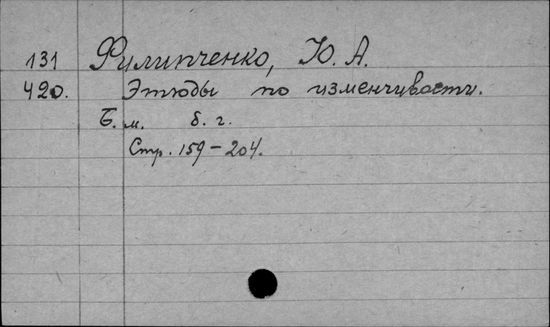 131 Филипченко, Ю. А.
420. Этюды по изменчивости.
Б. м. б. г.
Стр. 159-204.